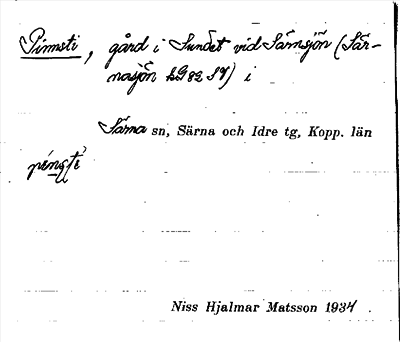 Pimsti, gård i Sundet vid Särnsjön (Sär-
nasjön LG82 SV) i
Särna sn, Särna och Idre tg, Kopp. län
Niss Hjalmar Matsson 1934